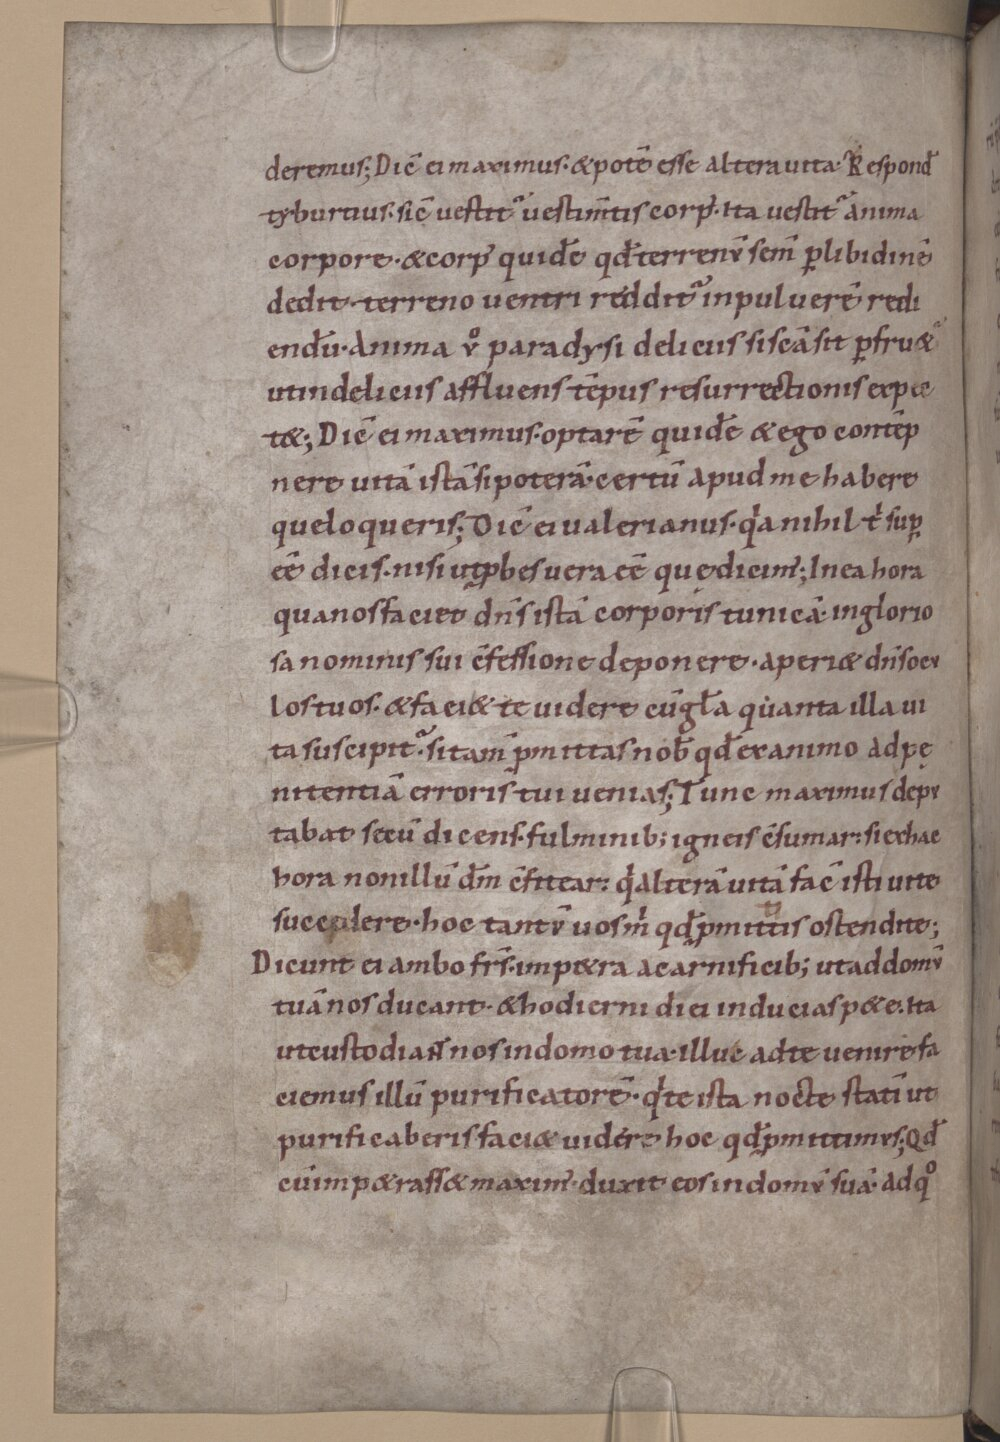 deremus; Dic̄ ei maximus· & potē esse altera uita· Respond̄
tyburtius· sic̄ uestit᷑ uestim̄tis corp᷒· Ita uestit᷑ anima
corpore· & corp᷒ quidē qd̄ terrenū sem̄ ꝑ libidinē
dedit· terreno uentri reddit᷑ in puluerē redi
endū· Anima ůͦ paradysi deliciis si scā sit ꝑfru&᷑
ut in deliciis affluens tēpus resurrectionis expec
t&; Dic̄ ei maximus· optarē quidē & ego contēp
nere uitā istā si poterā certū apud me habere
que loqueris; Dic̄ ei ualerianus· qͥa nihil t̉ suꝑ
eē dicis· nisi ut ꝓbes uera eē que dicim᷒; In ea hora
qua nos faci&t dn̄s istā corporis tunicā· in glorio
sa nominis sui c̄fessione deponere· aperi& dn̄s ocu
los tuos· & faci& te uidere cū gl̄a quanta illa ui
ta suscipit᷑· si tam̄ ꝓmittas nob̄ qd̄ ex animo ad pę
nitentiā erroris tui uenias; Tunc maximus depu
tabat secū dicens· fulminib; igneis c̄sumar: si ex hac
hora non illū dm̄ c̄fitear: qͥ alterā uitā fac̄ isti uite
succedere· hoc tantū uos mͥ qd̄ ꝓmittitis ostendite;
Dicunt ei ambo frs̄· imp&ra a carnificib; ut ad domū
tuā nos ducant· & hodierni diei inducias p&e· Ita
ut custodias nos in domo tua· illuc ad te uenire fa
ciemus illū purificatorē· qͥ te ista nocte statī ut
purificaberis faci& uidere hoc qd̄ ꝓmittimus; Qd̄
cū imp&rass& maxim᷒· duxit eos in domū suā· ad qͦ